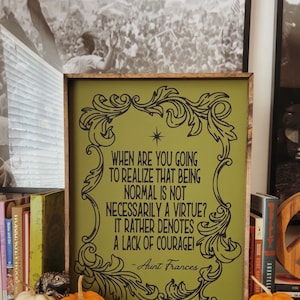 WHEN ARE YOU GOING
TO REALIZE THAT BEING
NORMAL IS NOT
NECESSARILY A VIRTUE?
IT RATHER DENOTES
A LACK OF COURAGE!
~Aunt Frances